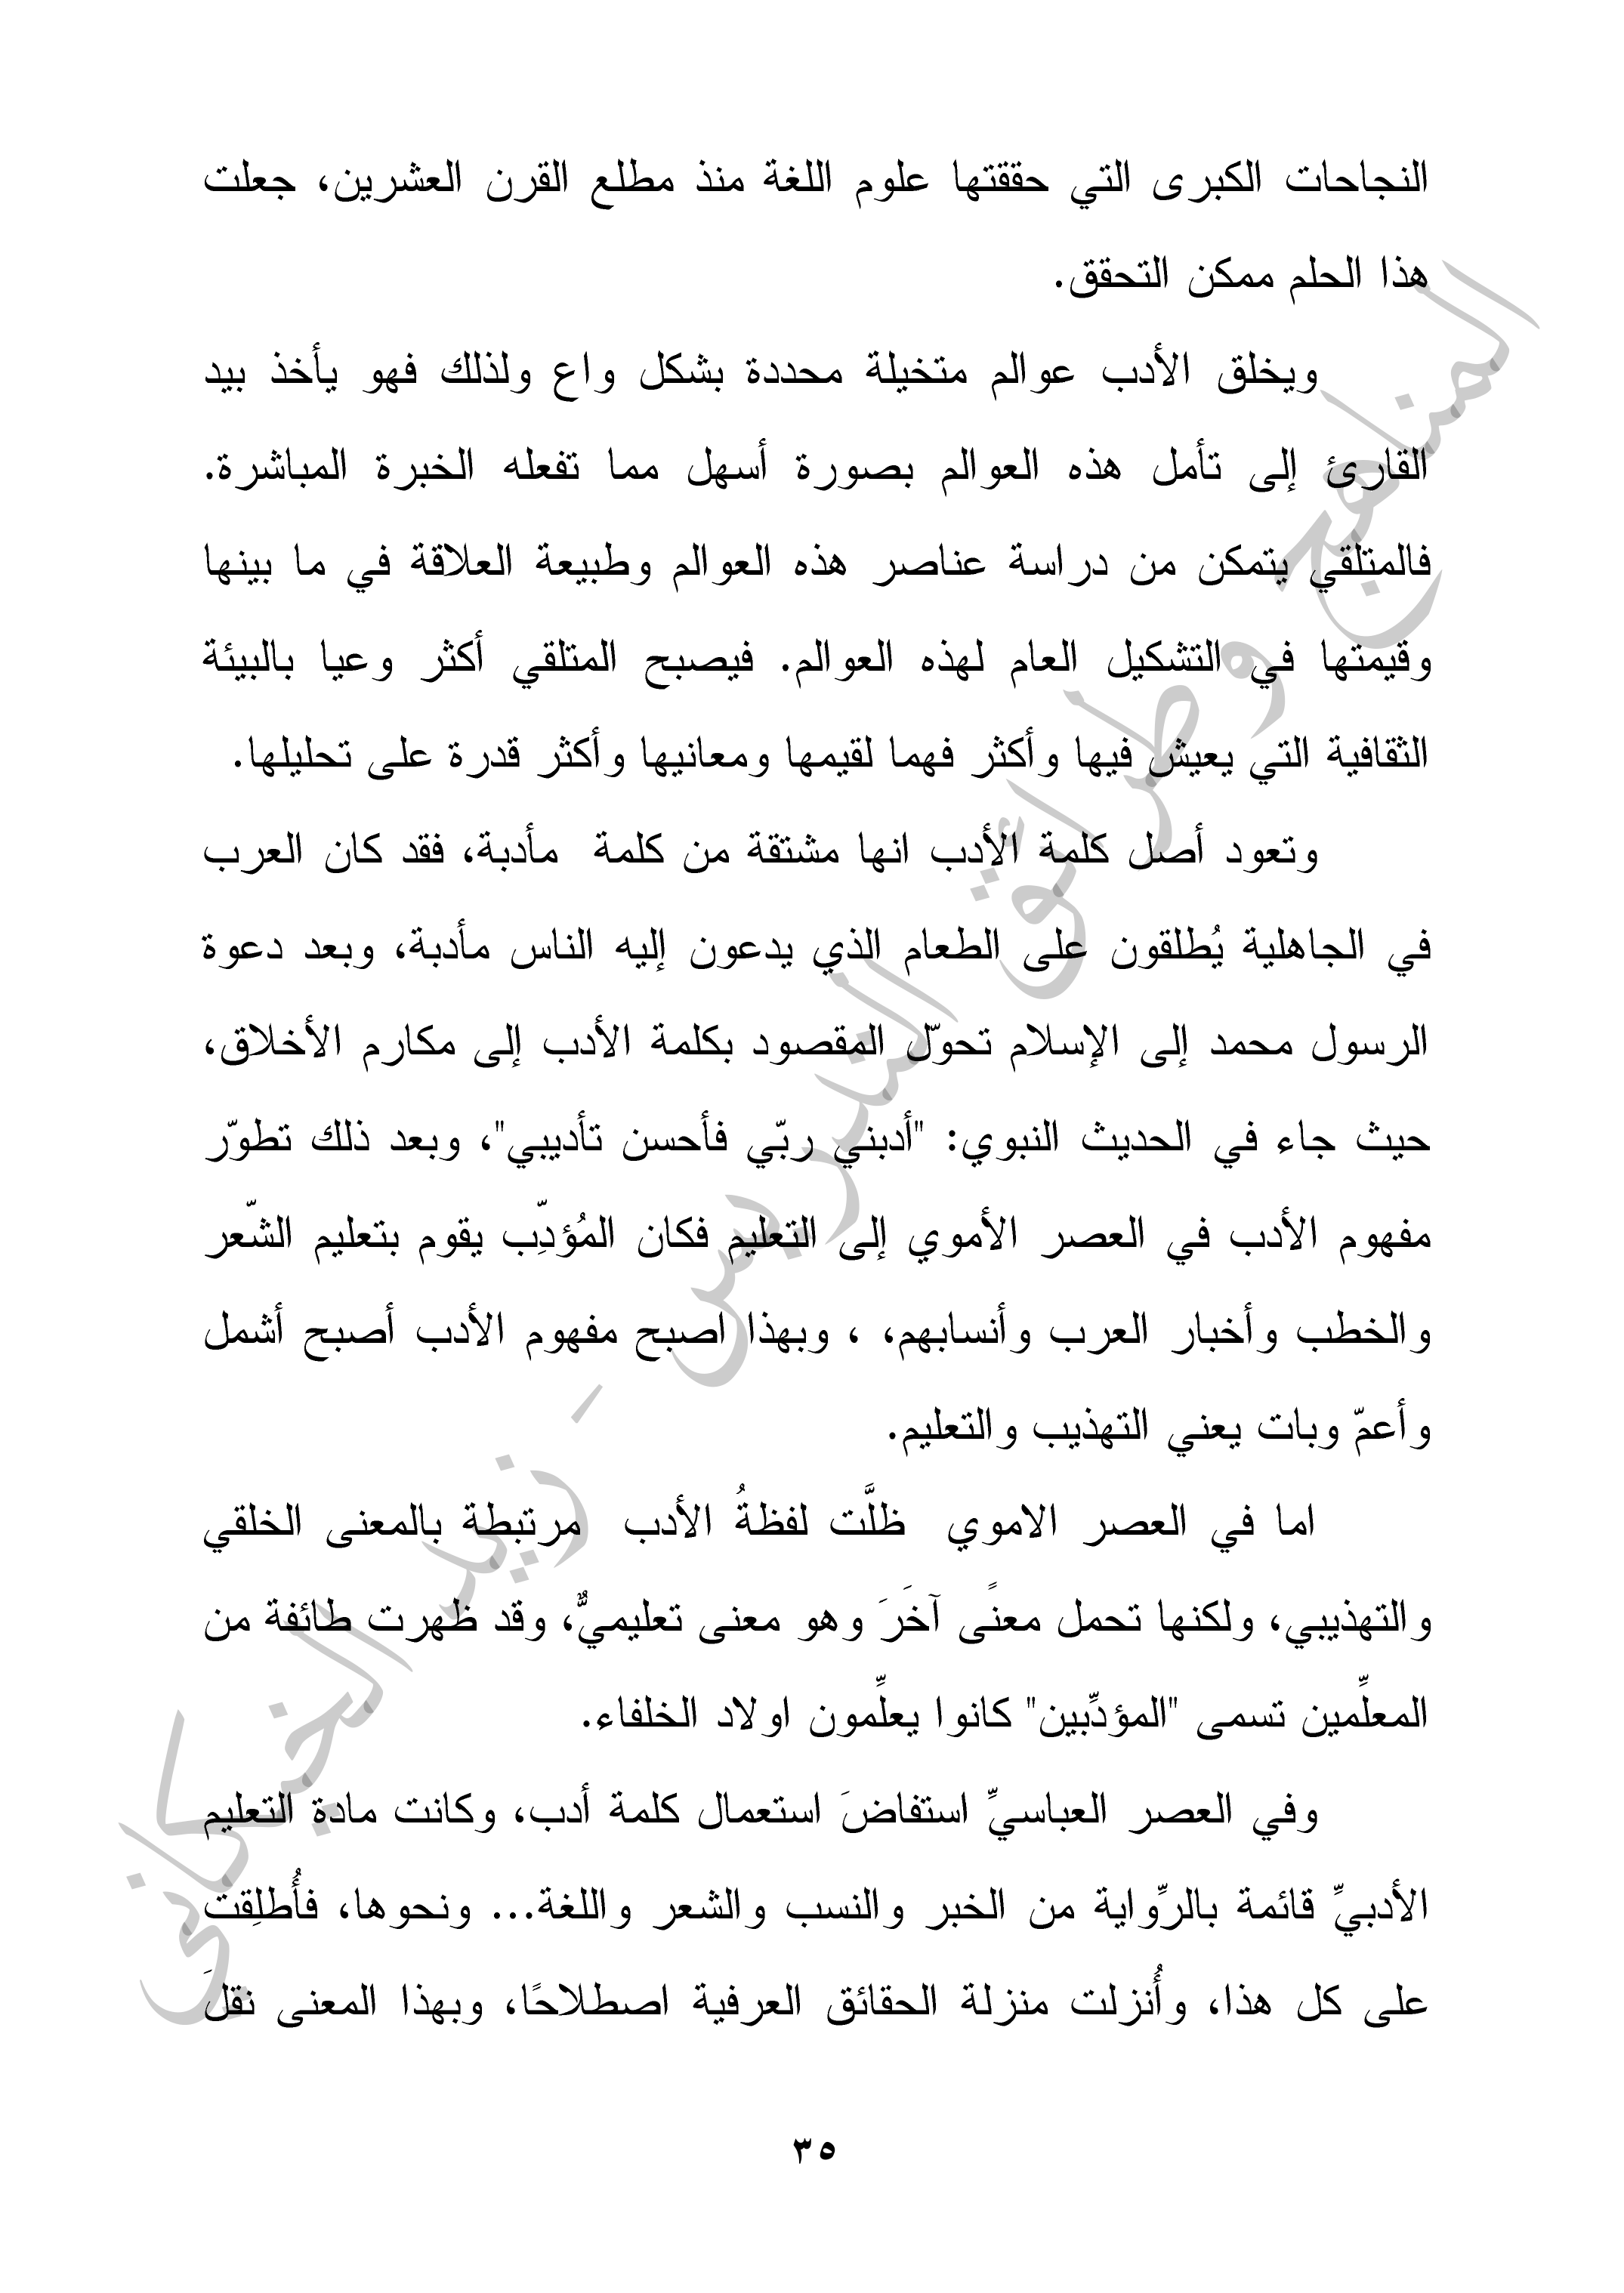 النجاحات الكبرى التي حققتها علوم اللغة منذ مطلع القرن العشرين، جعلت
هذا الحلم ممكن التحقق.
ويخلق الأدب عوالم متخيلة محددة بشكل واع ولذلك فهو يأخذ بيد
القارئ إلى تأمل هذه العوالم بصورة أسهل مما تفعله الخبرة المباشرة.
فالمتلقي يتمكن من دراسة عناصر هذه العوالم وطبيعة العلاقة في ما بينها
وقيمتها في التشكيل العام لهذه العوالم. فيصبح المتلقي أكثر وعيا بالبيئة
الثقافية التي يعيش فيها وأكثر فهما لقيمها ومعانيها وأكثر قدرة على تحليلها.
وتعود أصل كلمة الأدب انها مشتقة من كلمة مأدبة، فقد كان العرب
في الجاهلية يُطلقون على الطعام الذي يدعون إليه الناس مأدبة، وبعد دعوة
الرسول محمد إلى الإسلام تحوّل المقصود بكلمة الأدب إلى مكارم الأخلاق،
حيث جاء في الحديث النبوي: "أدبني ربّي فأحسن تأديبي"، وبعد ذلك تطوّر
مفهوم الأدب في العصر الأموي إلى التعليم فكان المُؤدِّب يقوم بتعليم الشّعر
والخطب وأخبار العرب وأنسابهم، ، وبهذا اصبح مفهوم الأدب أصبح أشمل
وأعمّ وبات يعني التهذيب والتعليم.
اما في العصر الاموي ظلَّت لفظةُ الأدب مرتبطة بالمعنى الخلقي
والتهذيبي، ولكنها تحمل معنًى آخَرَ وهو معنى تعليميٌّ، وقد ظهرت طائفة من
المعلِّمين تسمى "المؤدِّبين" كانوا يعلِّمون اولاد الخلفاء.
وفي العصر العباسيِّ استفاضَ استعمال كلمة أدب، وكانت مادة التعليم
الأدبيِّ قائمة بالرِّواية من الخبر والنسب والشعر واللغة... ونحوها، فأُطلِقت
على كل هذا، وأُنزلت منزلة الحقائق العرفية اصطلاحًا، وبهذا المعنى نقلَ
٣٥
المناهج وطرائق التدريس - زيد الخيكاني